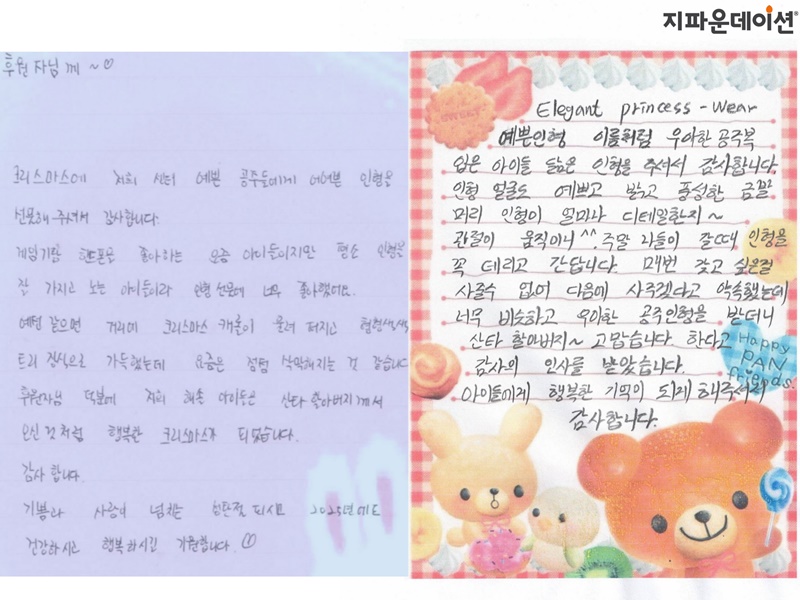 지파운데이션
후원자님께 ~♡
크리스마스에 저희 센터 예쁜 공주들에게 어여쁜 인형을
선물해 주셔서 감사합니다.
게임기랑 핸드폰을 좋아하는 요즘 아이들이지만 평소 인형을
잘 가지고 노는 아이들이라 인형 선물에 너무 좋아했어요.
예전 같으면 거리에 크리스마스 캐롤이 울려 퍼지고 형형색색
트리 장식으로 가득했는데 요즘은 점점 삭막해지는 것 같습니다
후원자님 덕분에 저희 아이들은 산타 할아버지께서
오신 것처럼 행복한 크리스마스가 되었습니다.
감사합니다.
기쁨과 사랑이 넘치는 성탄절 되시고 2025년에도
건강하시고 행복하시길 기원합니다. ♡
Elegant princess - Wear
예쁜인형 이름처럼 우아한 공주복
입은 아이들 닮은 인형을 주셔서 감사합니다.
인형 얼굴도 예쁘고 밝고 풍성한 금발
머리 인형이 얼마나 디테일한지 ~
관절이 움직이니 ^^. 주말 나들이 갈때 인형을
꼭 데리고 간답니다. 매번 갖고 싶은걸
사줄수 없어 다음에 사주겠다고 약속했는데
너무 비슷하고 우아한 공주인형을 받더니
산타 할아버지~ 고맙습니다. 하다고
감사의 인사를 받았습니다.
아이들에게 행복한 기억이 되게 해주셔서
감사합니다.
Happy
PAN
friends.